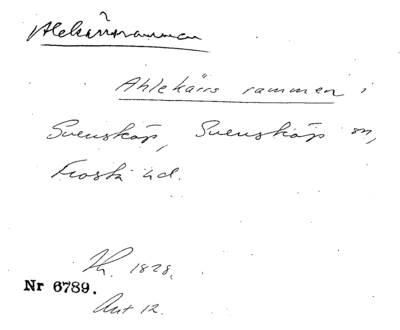 Alekärrsrammen
Ahlekärrs rammen i
Svensköp, Svensköp sn,
Frosta hd.
Lh. 1828.
Nr 6789.
Akt 12.